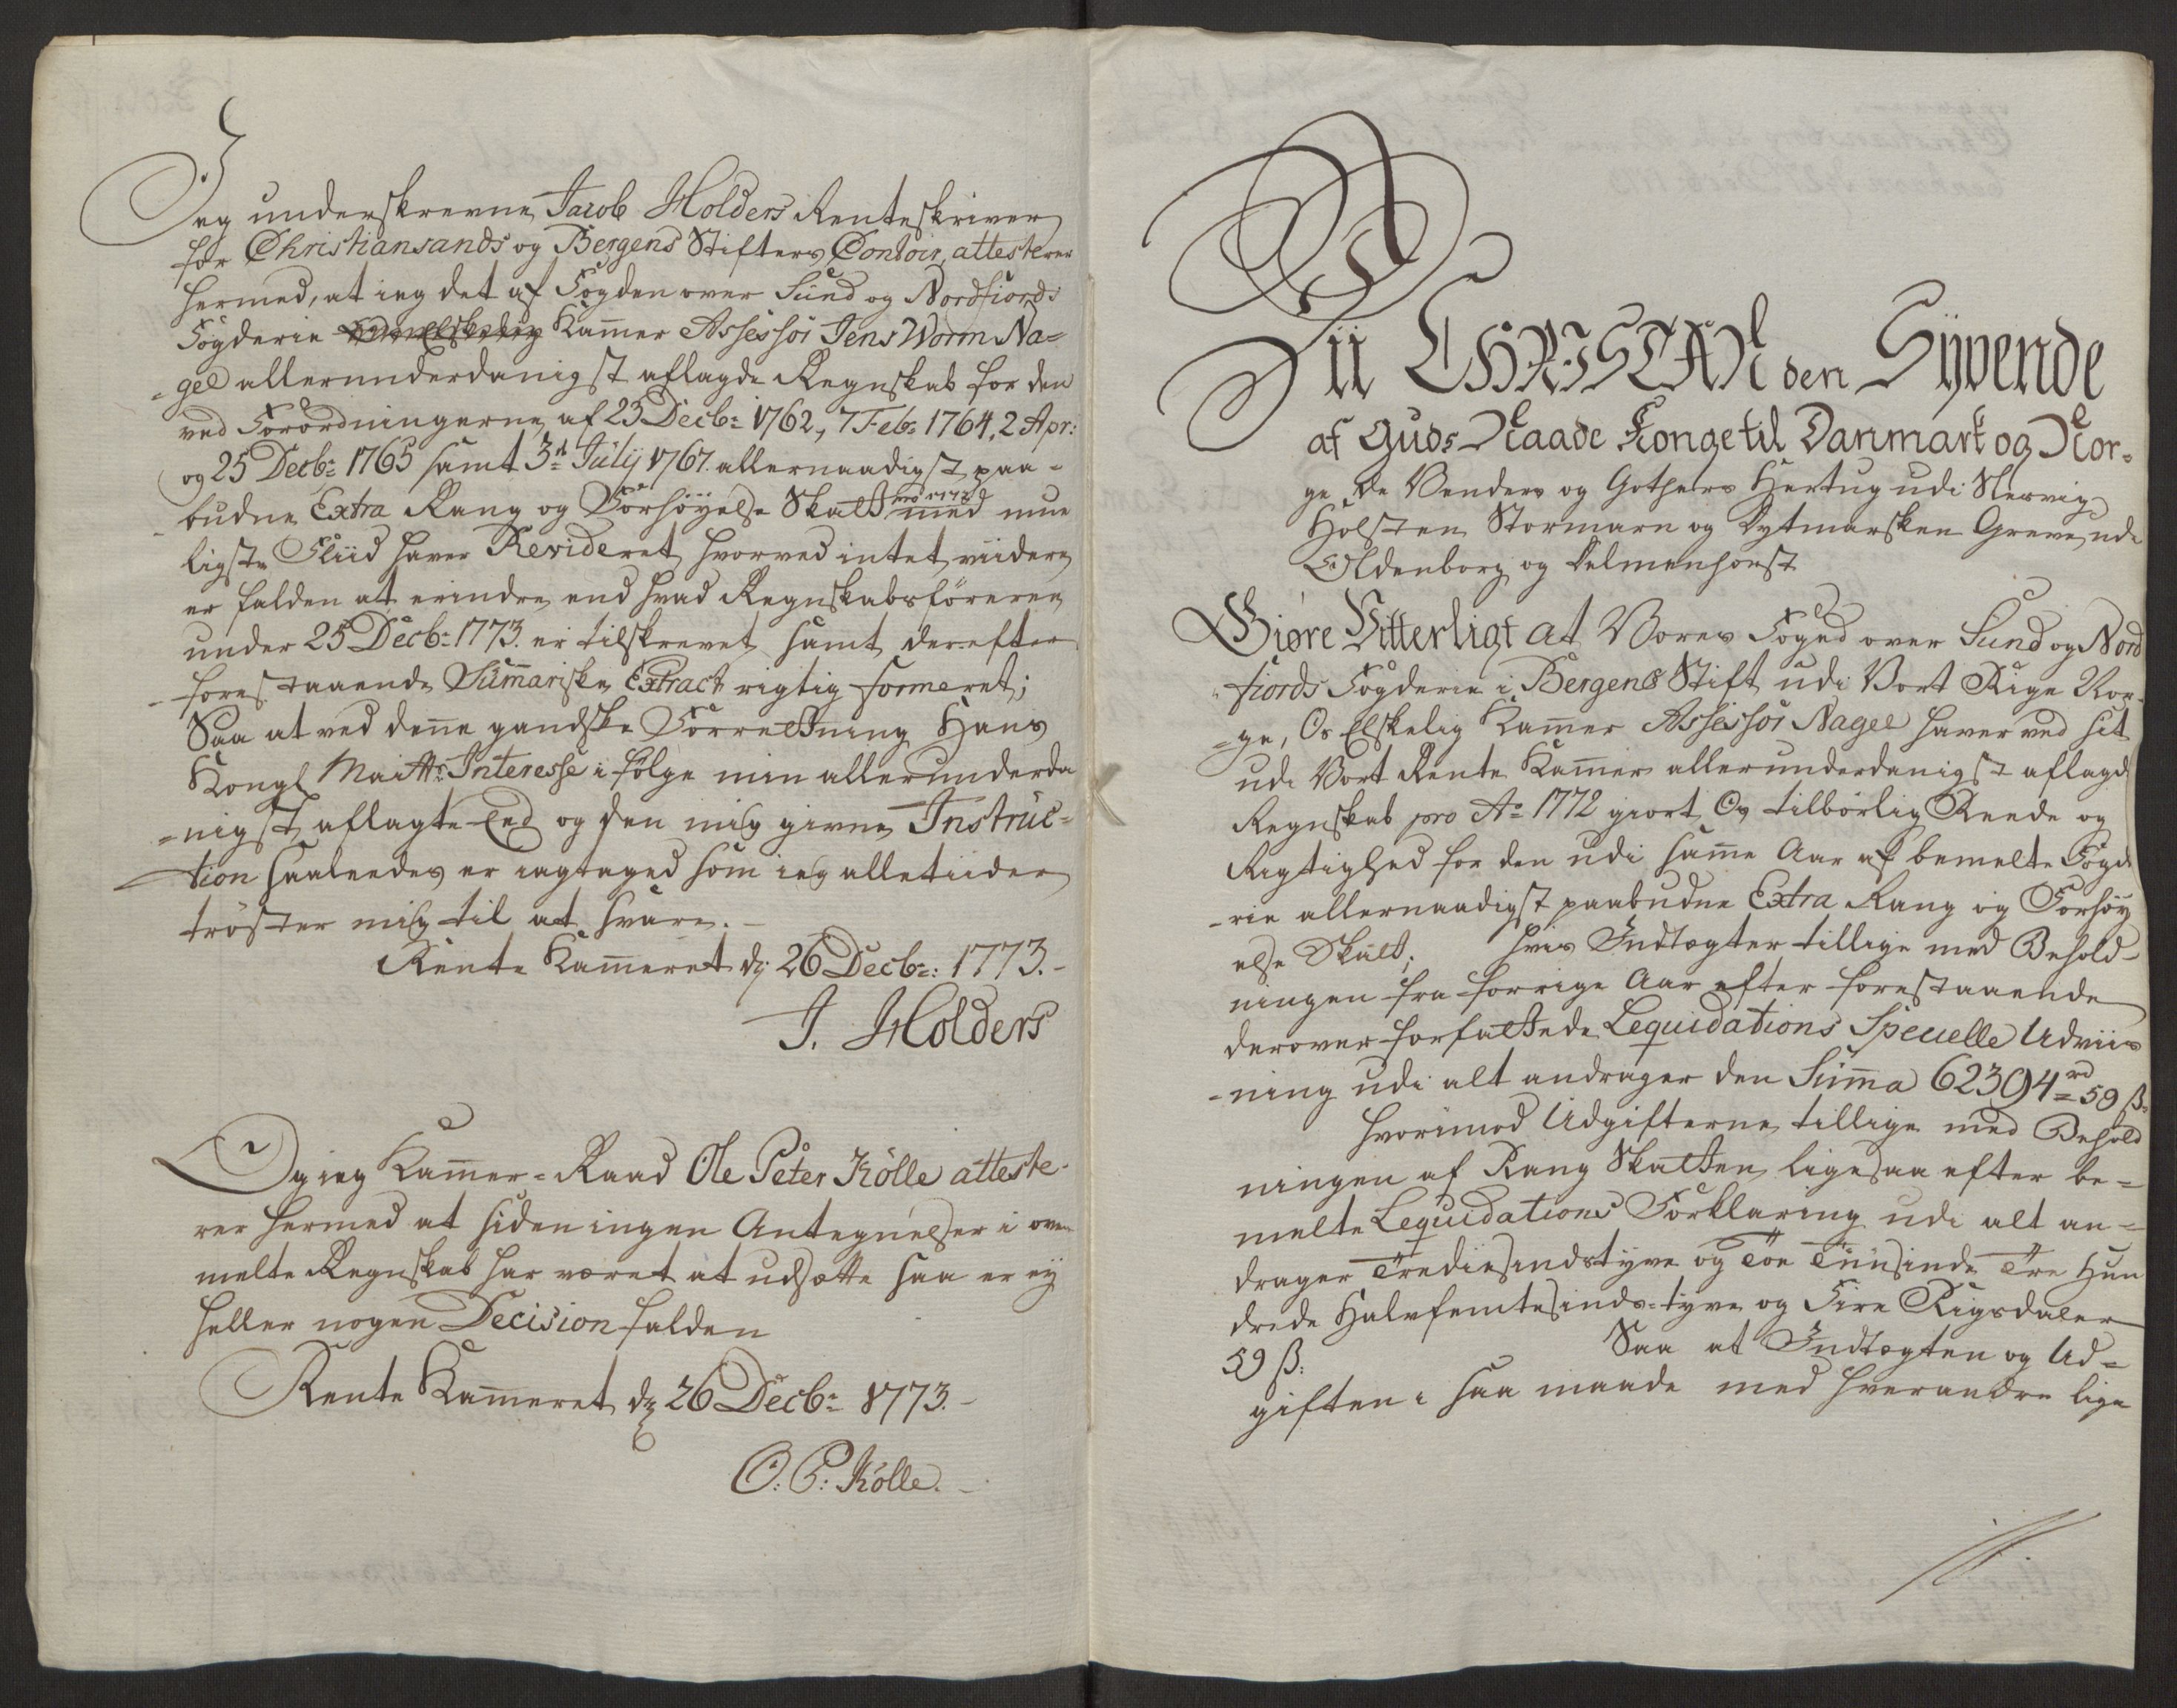 Jeg underskrevne Jacob Holders Renteskriver
for Christiansands og Bergens Stifters Contoir, attesterer
hermed, at ieg det af Fogden over Sund og Nordfiords
Fögderie Kammer Assessor Jens Worm Na=
=gel allerunderdanigst aflagde Regnskab for den
ved Forordningerne af 23 Decbr: 1762, 7 Febr: 1764, 2 Apr:
og 25 Decbr: 1765 samt 3de Julij 1767. allernaadigst paa=
budne Extra Rang og Forhöyelse Skatt pro 1772 med mue
ligste Fliid haver Revideret, hvorved intet viidere
er falden at erindre, end hvad Regnskabsföreren
under 25 Decbr: 1773. er tilskrevet, samt derefter
forestaaende Summariske Extract rigtig formeret;
Saa at ved denne gandske Forrettning Hans
Kongl Maitts: Interesse i fölge min allerunderda
=nigst aflagte Eed og den mig givne Instruc=
tion saaleedes er iagtaged som ieg alletiider
tröster mig til at svare.
Rente Kammeret dj 26 Decbr: 1773.
J. Holders
Og ieg Kammer=Raad Ole Peter Kölle atteste=
rer hermed at siden ingen Antegnelser i ovm
melte Regnskab har været at udsætte saa er ey
heller nogen Decision falden
Rente Kammeret dj 26 Decbr: 1773.
O: P: Kölle.
Vii CHRISTIAN den Syvende
af Guds Naade Konge til Danmark og Nor=
ge, De Venders og Gothers Hertug udi Slesvig
Holsten Stormarn og Dytmarsken Greve udi
Oldenborg og Delmenhorst
Giøre Vitterligt at Vores Foged over Sund og Nord
fiords Fögderie i Bergens Stift udi Vort Rige Nor=
=ge, Os Elskelig Kammer Assessor Nagel haver ved sit
udi Vort Rente Kammer allerunderdanigst aflagde
Regnskab pro Ao 1772 giort Os tilbörlig Reede og
Rigtighed for den udi samme Aar af bemelte Fögde
=rie allernaadigst paabudne Extra Rang og Forhöy
else Skatt; hvis Indtægter tillige med Behold=
ningen fra forrige Aar efter forestaaende
derover forfattede Liquidations Specielle Udviis
=ning udi alt andrager den Summa 62394 rd 59 ß.
hvorimod Udgifterne tillige med Behold
ningen af Rang Skatten ligesaa efter be=
melte Liquidations Forklaring udi alt an=
drager Trediesindstyve og Toe Tuusinde Tre Hun
drede Halvfemtesinds=tyve og Fire Rigsdaler
59 ß: Saa at Indtægten og Ud=
giften i saa maade med hverandre lige